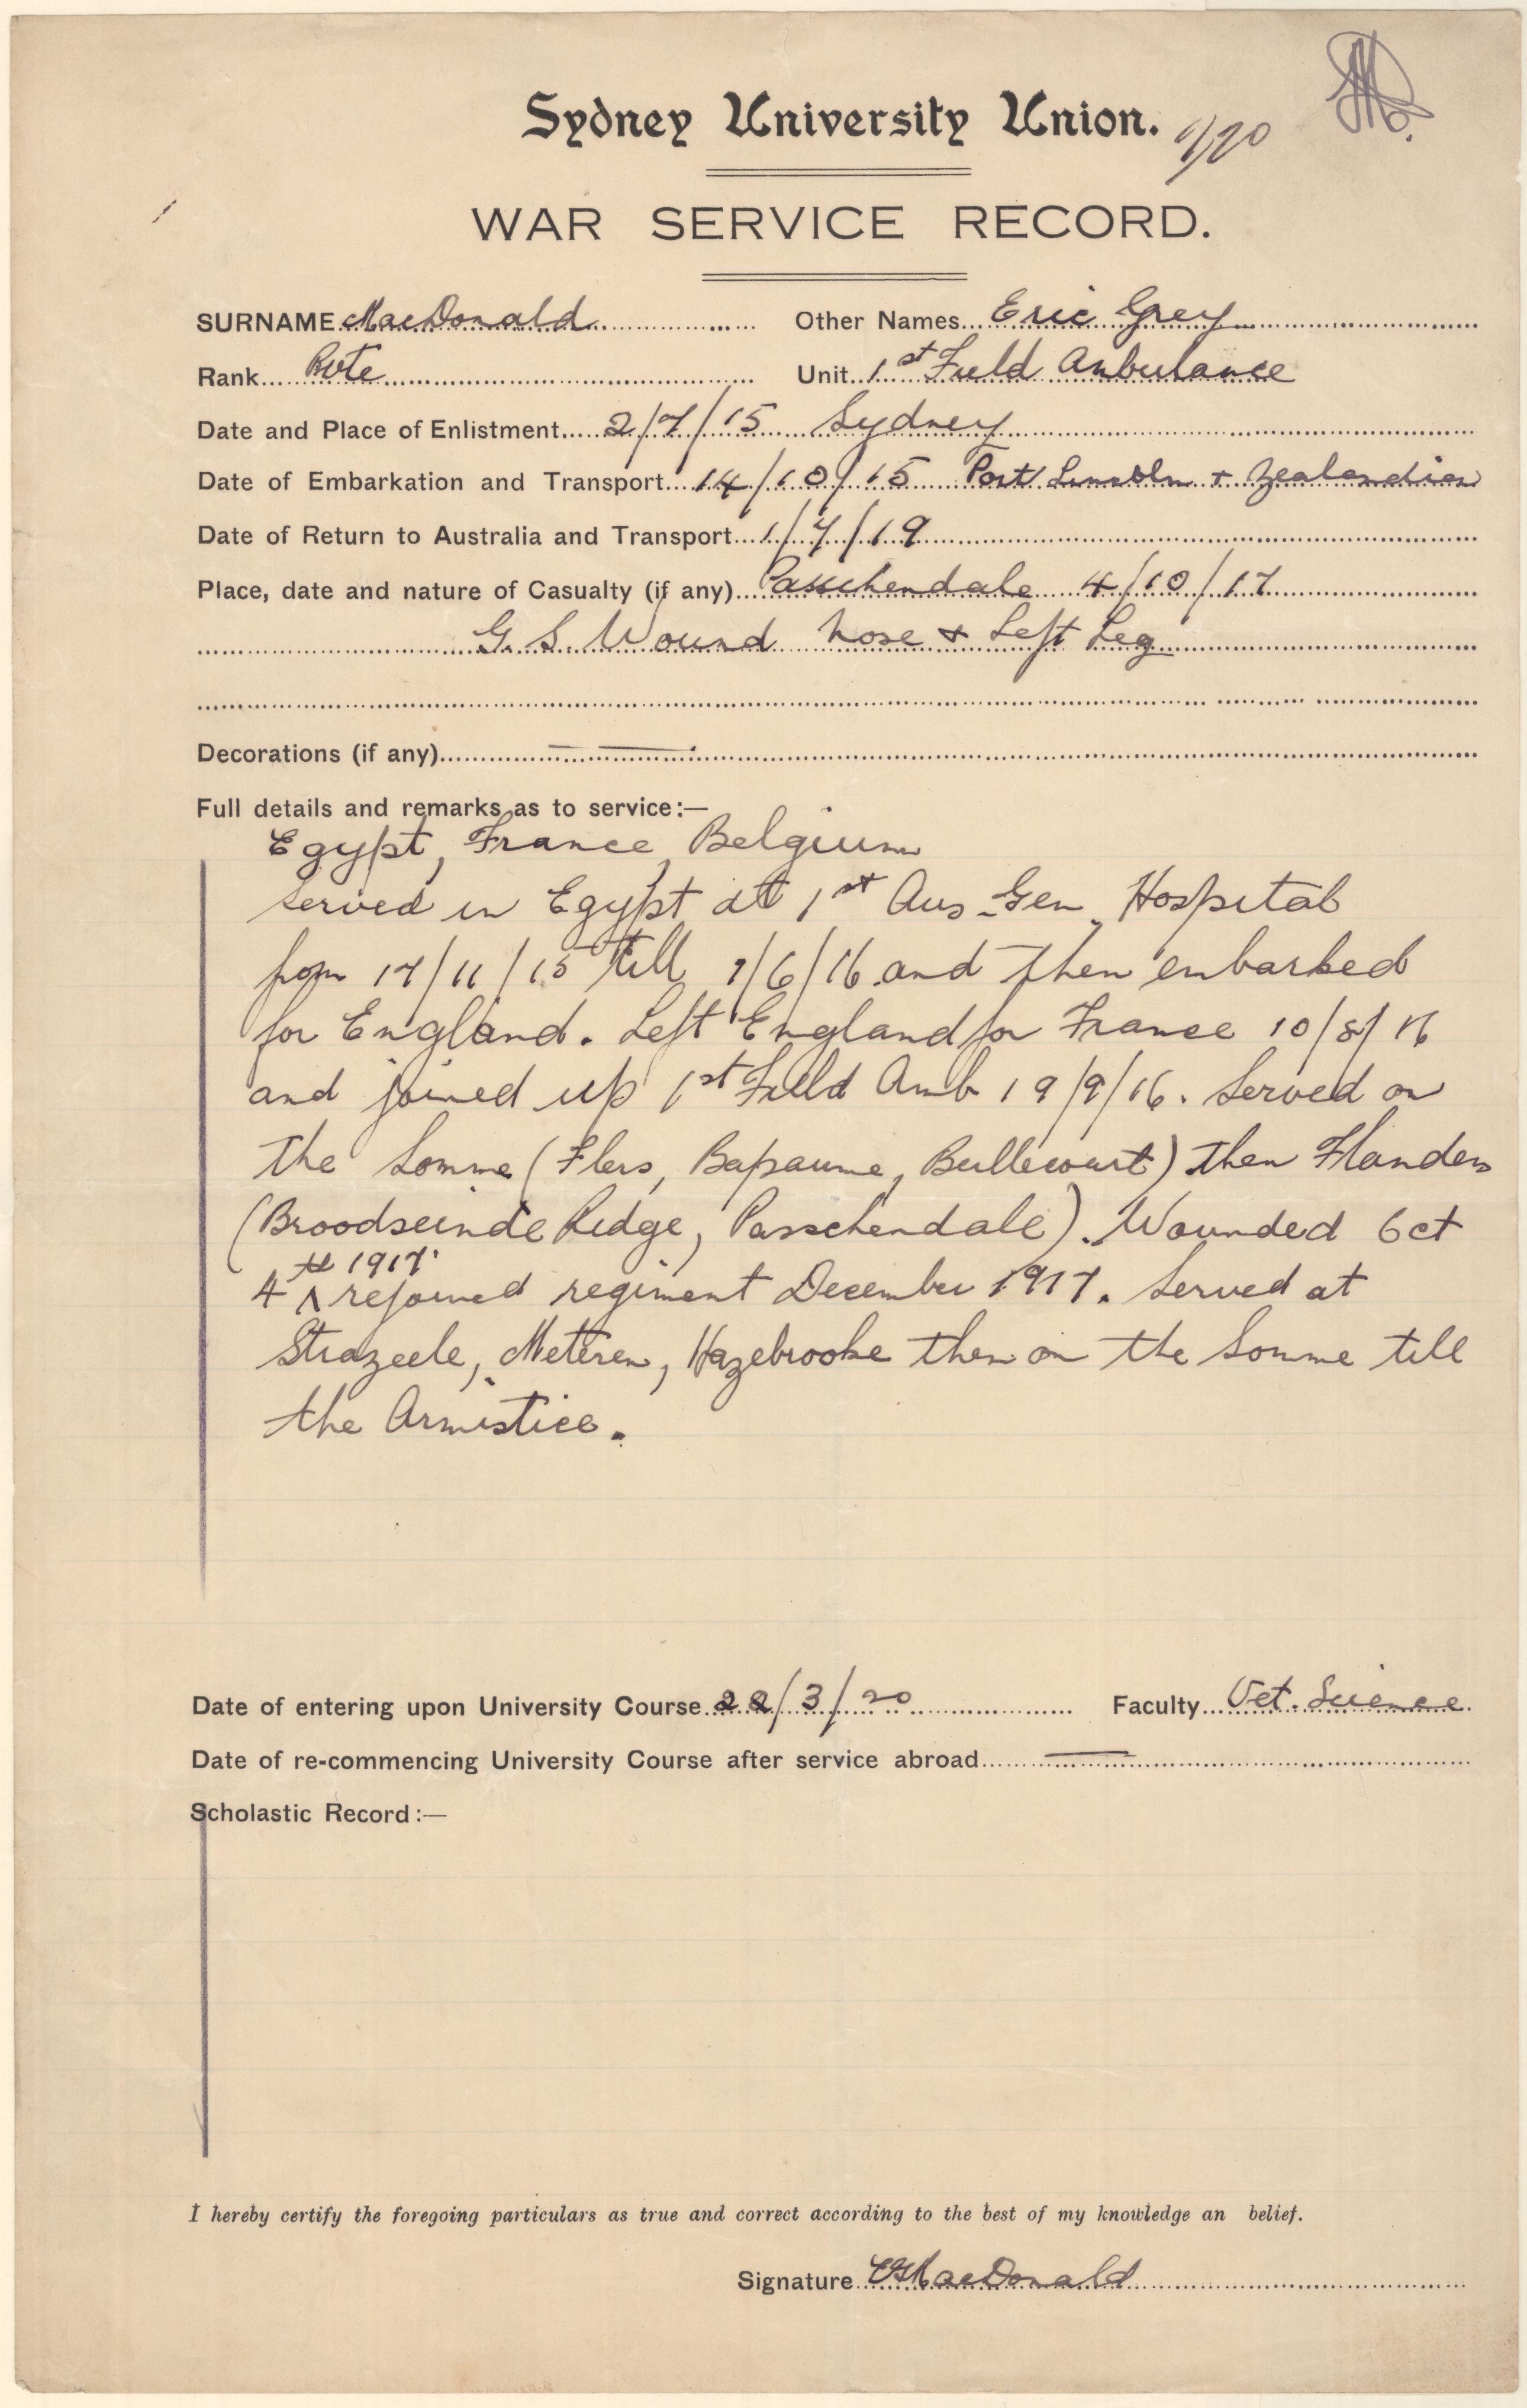 Sydney University Union.
WAR SERVICE RECORD.
SURNAME MacDonald Other Names Eric Grey
Rank Pvte Unit 1st Field Ambulance
Date and Place of Enlistment 2/7/15 Sydney
Date of Embarkation and Transport 14/10/15 Port Lincoln + Zealandier
Date of Return to Australia and Transport 1/7/19
Place, date and nature of Casualty (if any) Passchendale 4/10/17
G. S. Wound nose + Left Leg
Decorations (if any) —
Full details and remarks as to service:—
Egypt, France, Belgium
Served in Egypt at 1st Aus-Gen. Hospital
from 17/11/15 till 9/6/16 and then enbarked
for England. Left England for France 10/8/16
and joined up 1st Field Amb 19/9/16. Served on
the Somme (Flers, Bapaume, Bullecourt) then Flanders
(Broodseinde Ridge, Passchendale). Wounded Oct
4th 1917. rejoined regiment December 1917. Served at
Strazeele, Meteren, Hazebrooke then on the Somme till
the Armistice.
Date of entering upon University Course 22/3/20 Faculty Vet. Science
Date of re-commencing University Course after service abroad —
Scholastic Record:—
I hereby certify the foregoing particulars as true and correct according to the best of my knowledge an belief.
Signature EGMacDonald